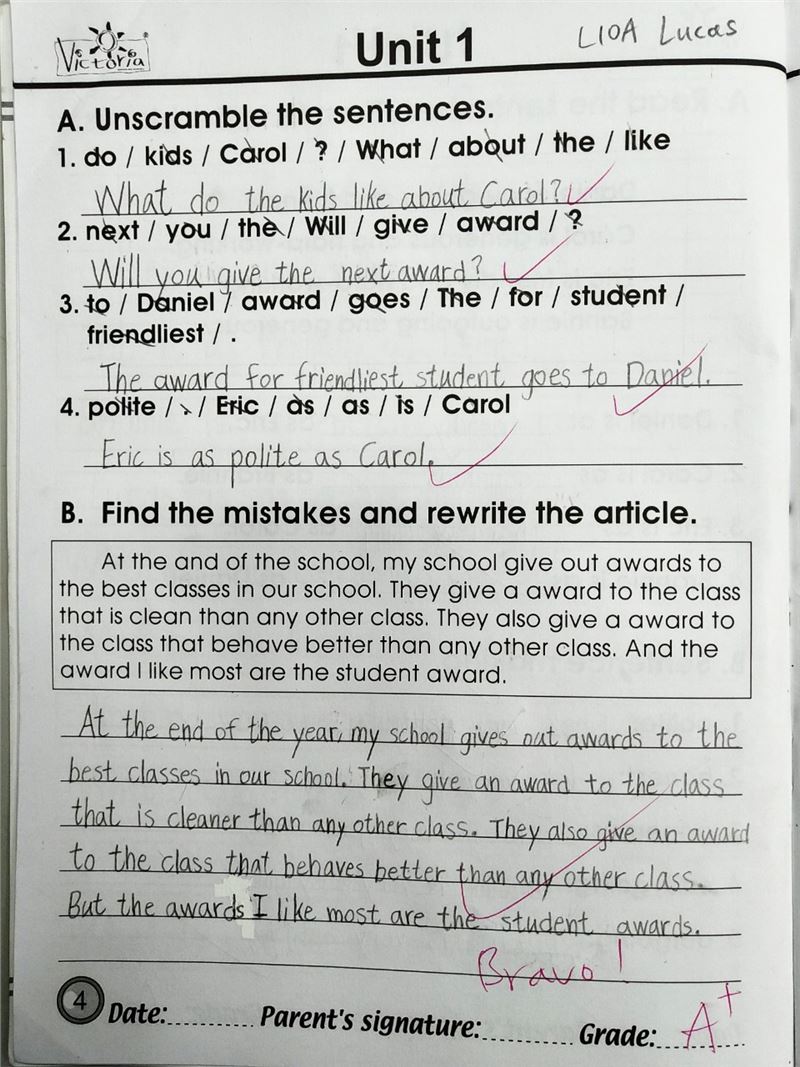 Victoria
Unit 1
L10A Lucas
A. Unscramble the sentences.
1. do / kids / Carol / ? / What / about / the / like
What do the kids like about Carol?
2. next / you / the / Will / give / award / ?
Will you give the next award?
3. to / Daniel / award / goes / The / for / student /
friendliest / .
The award for friendliest student goes to Daniel.
4. polite / . / Eric / as / as / is / Carol
Eric is as polite as Carol.
B. Find the mistakes and rewrite the article.
At the and of the school, my school give out awards to
the best classes in our school. They give a award to the class
that is clean than any other class. They also give a award to
the class that behave better than any other class. And the
award I like most are the student award.
At the end of the year, my school gives out awards to the
best classes in our school. They give an award to the class
that is cleaner than any other class. They also give an award
to the class that behaves better than any other class.
But the awards I like most are the student awards.
Bravo!
4 Date:.......... Parent's signature:............ Grade:............ A+